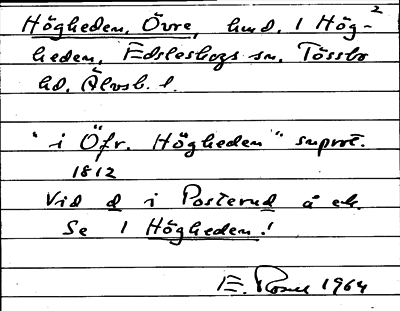 Högheden, Övre, hmd. 1 Hög-²
heden, Edsleskogs sn, Tössbo
hd, Älvsb. l.
"i Öfr. Högheden" suprt.
1812
Vid d i Posterud å ek.
Se 1 Högheden!
E. 1964